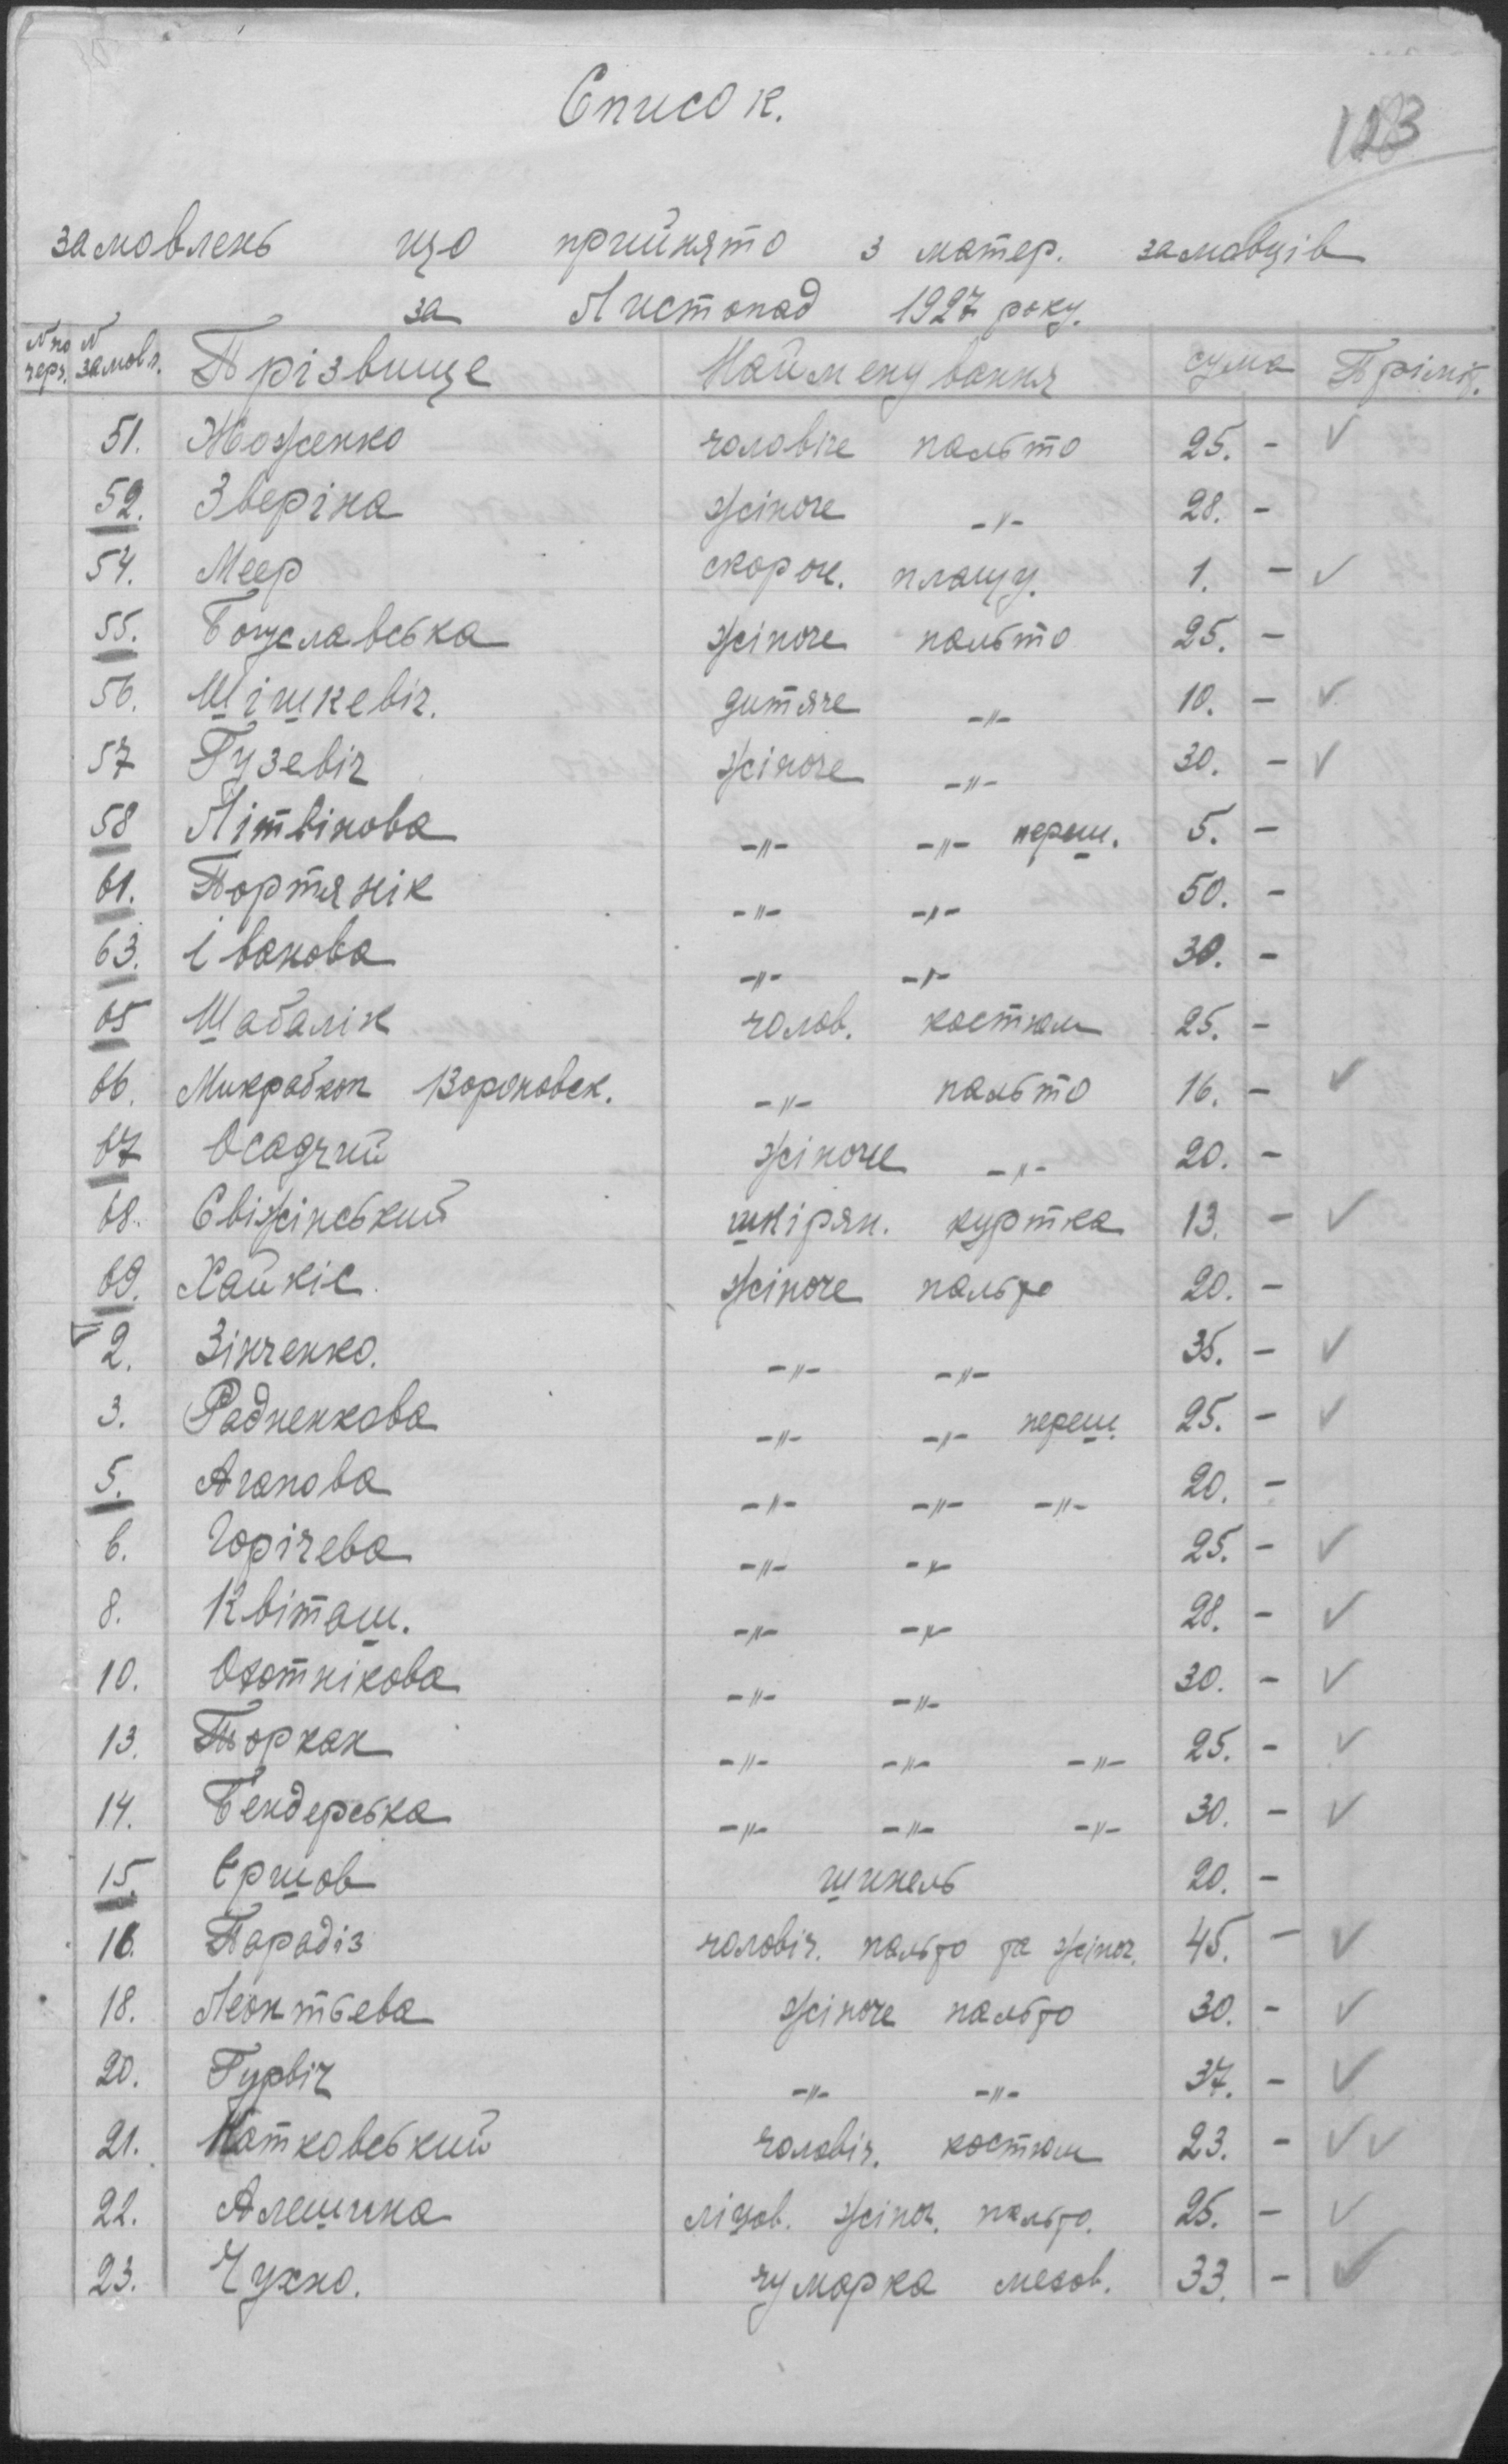 Список.
123
замовлень що прийнято з матер. замовців
за Листопад 1927 року.
N по черг. N замовл. Прізвище Найменування сума Прімік.
51. Жоженко чоловіче пальто 25. - ✓
52. Зверіна жіноче -"- 28. -
54. Меер скороч. плащу. 1. - ✓
55. Богуславська жіноче пальто 25. -
56. Шішкевіч. дитяче -"- 10. - ✓
57 Гузевіч жіноче -"- 30. - ✓
58 Літвінова -"- -"- переш. 5. -
61. Портянік -"- -"- 50. -
63. Іванова -"- -"- 30. -
65 Шабалін чолов. костюм 25. -
66. Микрабкоп Вороновск. -"- пальто 16. - ✓
67 Осадчий жіноче -"- 20. -
68. Свіжінський шкірян. куртка 13. - ✓
69. Хайкіс. жіноче пальто 20. -
2. Зінченко. -"- -"- 35. - ✓
3. Радненкова -"- -"- переш. 25. - ✓
5. Агапова -"- -"- -"- 20. -
6. Горічева -"- -"- 25. - ✓
8. Квіташ. -"- -"- 28. - ✓
10. Охотнікова -"- -"- 30. - ✓
13. Торкан -"- -"- -"- 25. - ✓
14. Бендерська -"- -"- -"- 30. - ✓
15. Єршов шинель 20. -
16. Парадіз чоловіч. пальто та жіноч. 45. - ✓
18. Леонтьева жіноче пальто 30. - ✓
20. Гурвіч -"- -"- 37. - ✓
21. Натковський чоловіч. костюм 23. - ✓ ✓
22. Алешина ліцов. жіноч. пальто. 25. - ✓
23. Чухно. чумарка мехов. 33. - ✓